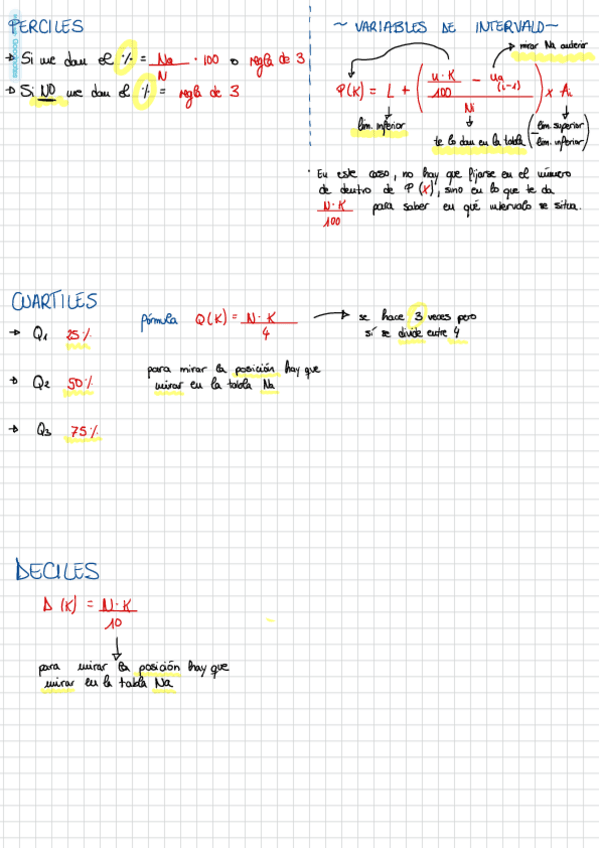 PERCILES
→ Si me dan el % = Na/N · 100 o regla de 3
→ Si NO me dan el % = regla de 3
~ VARIABLES DE INTERVALO ~
→ mirar Na anterior
P(K) = L + ( (n·K/100 − na (i−1)) / Ni ) x Ai
lim. inferior
te lo dan en la tabla
(lim. superior − lim. inferior)
· En este caso, no hay que fijarse en el número
de dentro de P(X), sino en lo que te da
N·K/100 para saber en qué intervalo se situa.
CUARTILES
→ Q1 25%
fórmula Q(K) = N·K/4 → se hace 3 veces pero
sí se divide entre 4
→ Q2 50%
para mirar la posición hay que
mirar en la tabla Na
→ Q3 75%
DECILES
D(K) = N·K/10
para mirar la posición hay que
mirar en la tabla Na